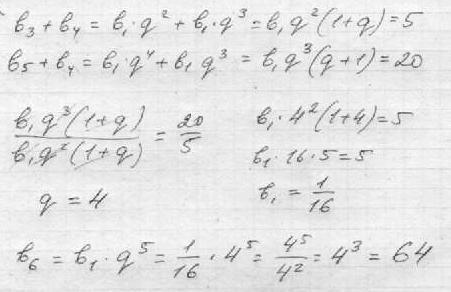 b₃ + b₄ = b₁·q² + b₁·q³ = b₁q²(1+q) = 5
b₅ + b₄ = b₁·q⁴ + b₁q³ = b₁q³(q+1) = 20
b₁q³(1+q) / b₁q²(1+q) = 20/5
q = 4
b₁·4²(1+4) = 5
b₁·16·5 = 5
b₁ = 1/16
b₆ = b₁·q⁵ = 1/16 · 4⁵ = 4⁵/4² = 4³ = 64